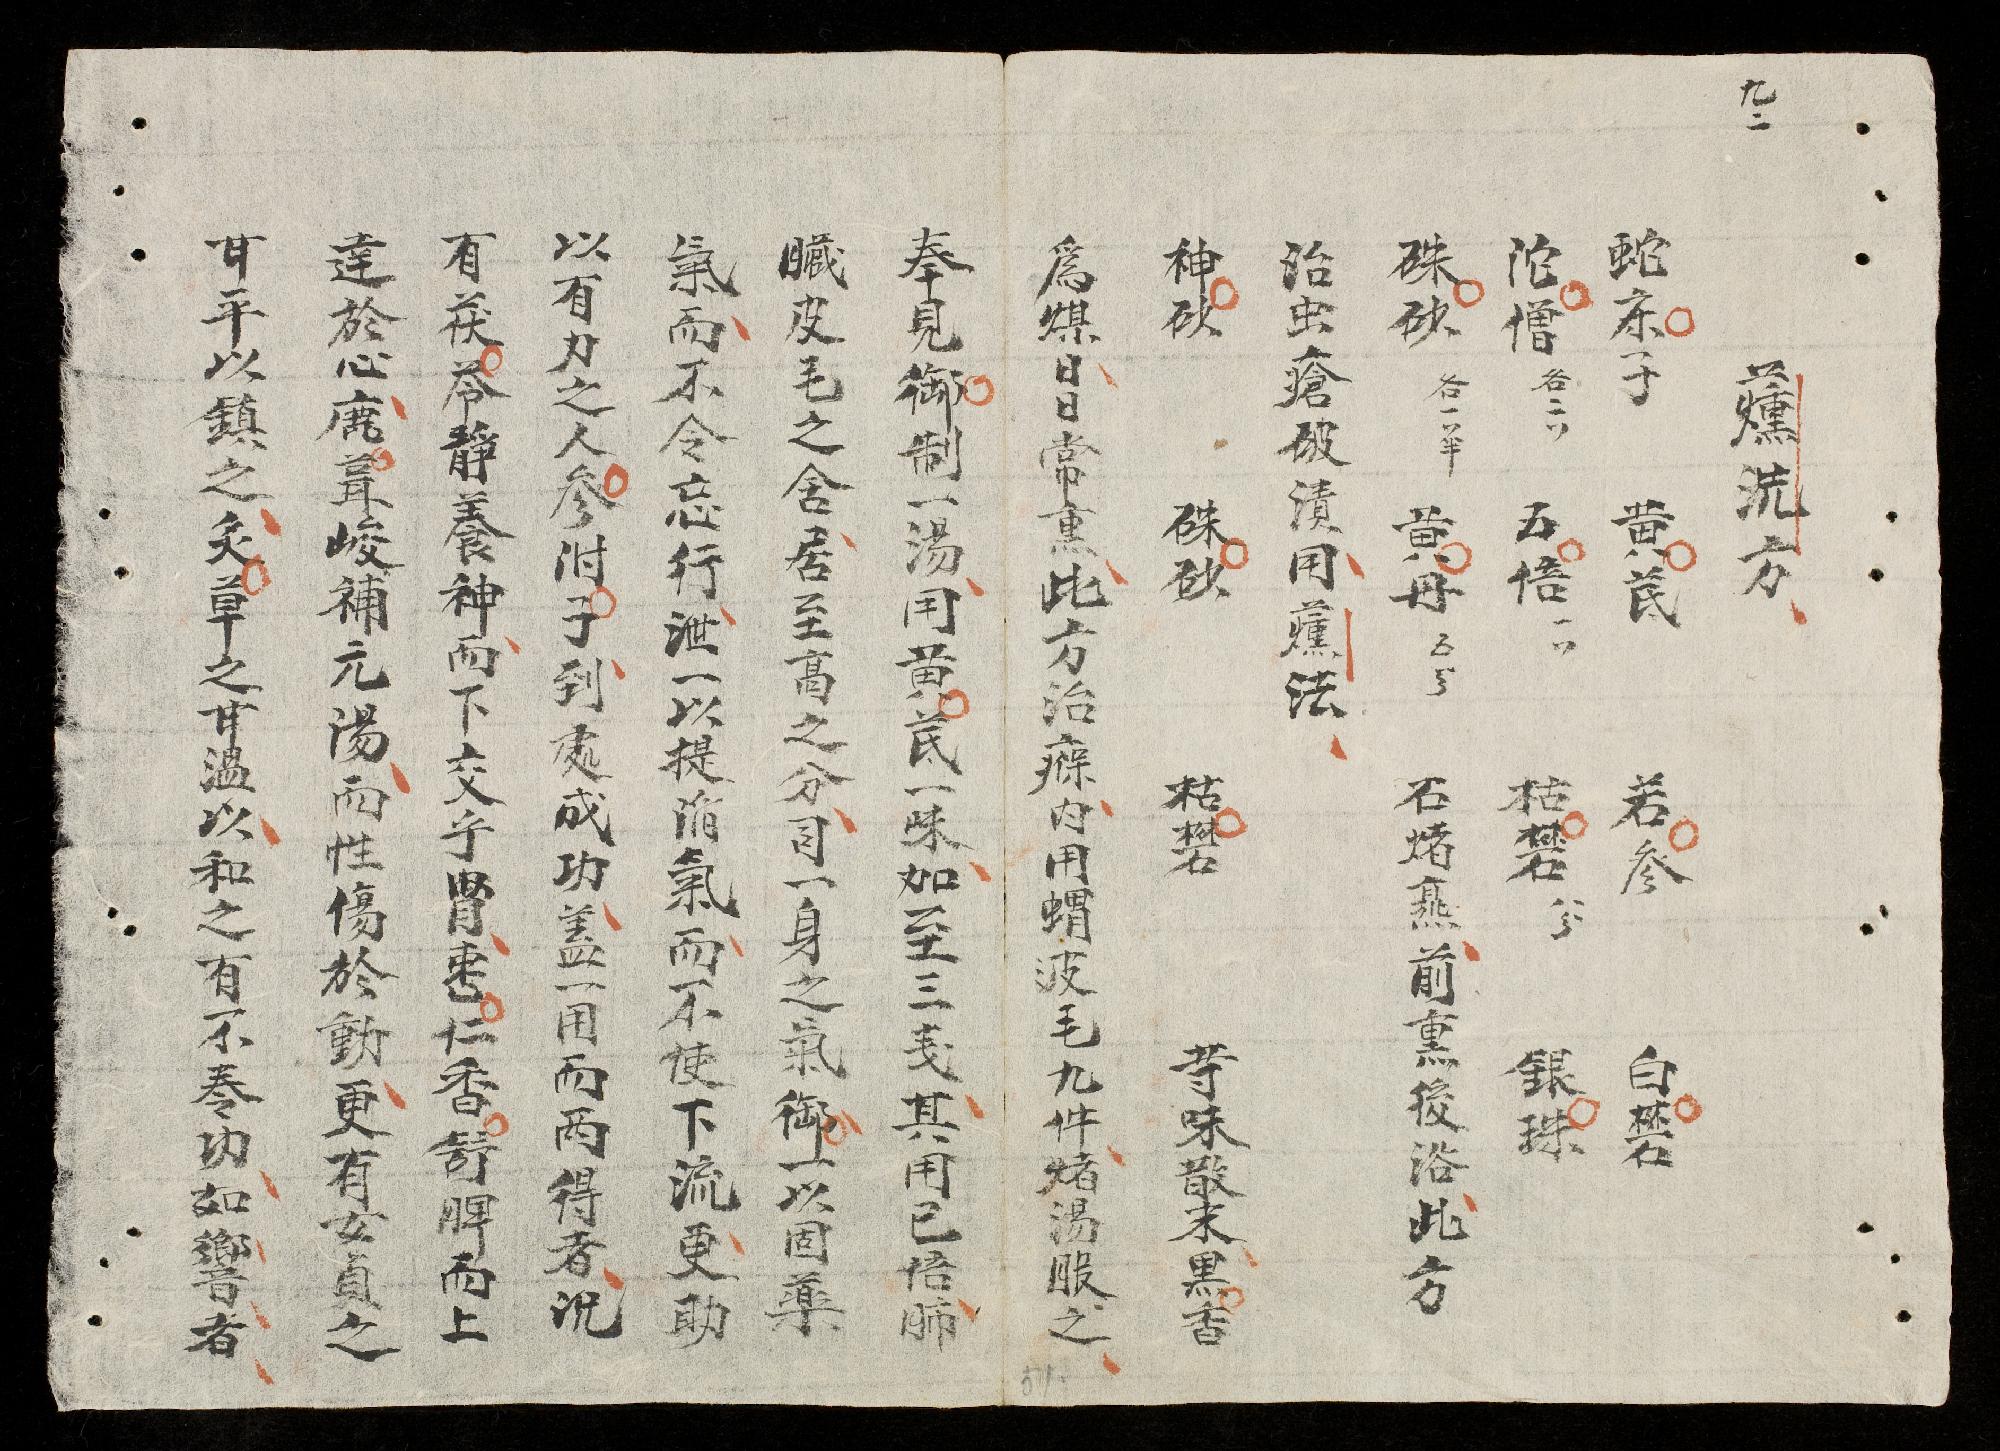 九二
薰洗方
蛇床子 黄芪 若参 白礬
沱僧 各二 五倍 一 枯礬 八分 銀珠
硃砂 各一 黄丹 五分 石煑燕前熏後浴此方
治虫瘡破漬用薰法
神砂 硃砂 枯礬 䓁味散末黒香
爲煤日日常熏此方治癖内用蝟波毛九件煑湯服之
奉見御制一湯用黄芪一味如至三戔其用已倍肺
臓皮毛之舍居至高之分司一身之氣御一以固藥
氣而不令忘行泄一以提消氣而不使下流更助
以有力之人参附子到處成功盖一用而両得者况
有茯苓靜養神而下交乎腎棗仁香舒脾而上
達於心鹿茸峻補元陽而性傷於動更有女貞之
甘平以鎮之炙草之甘温以和之有不奏功如響者
51